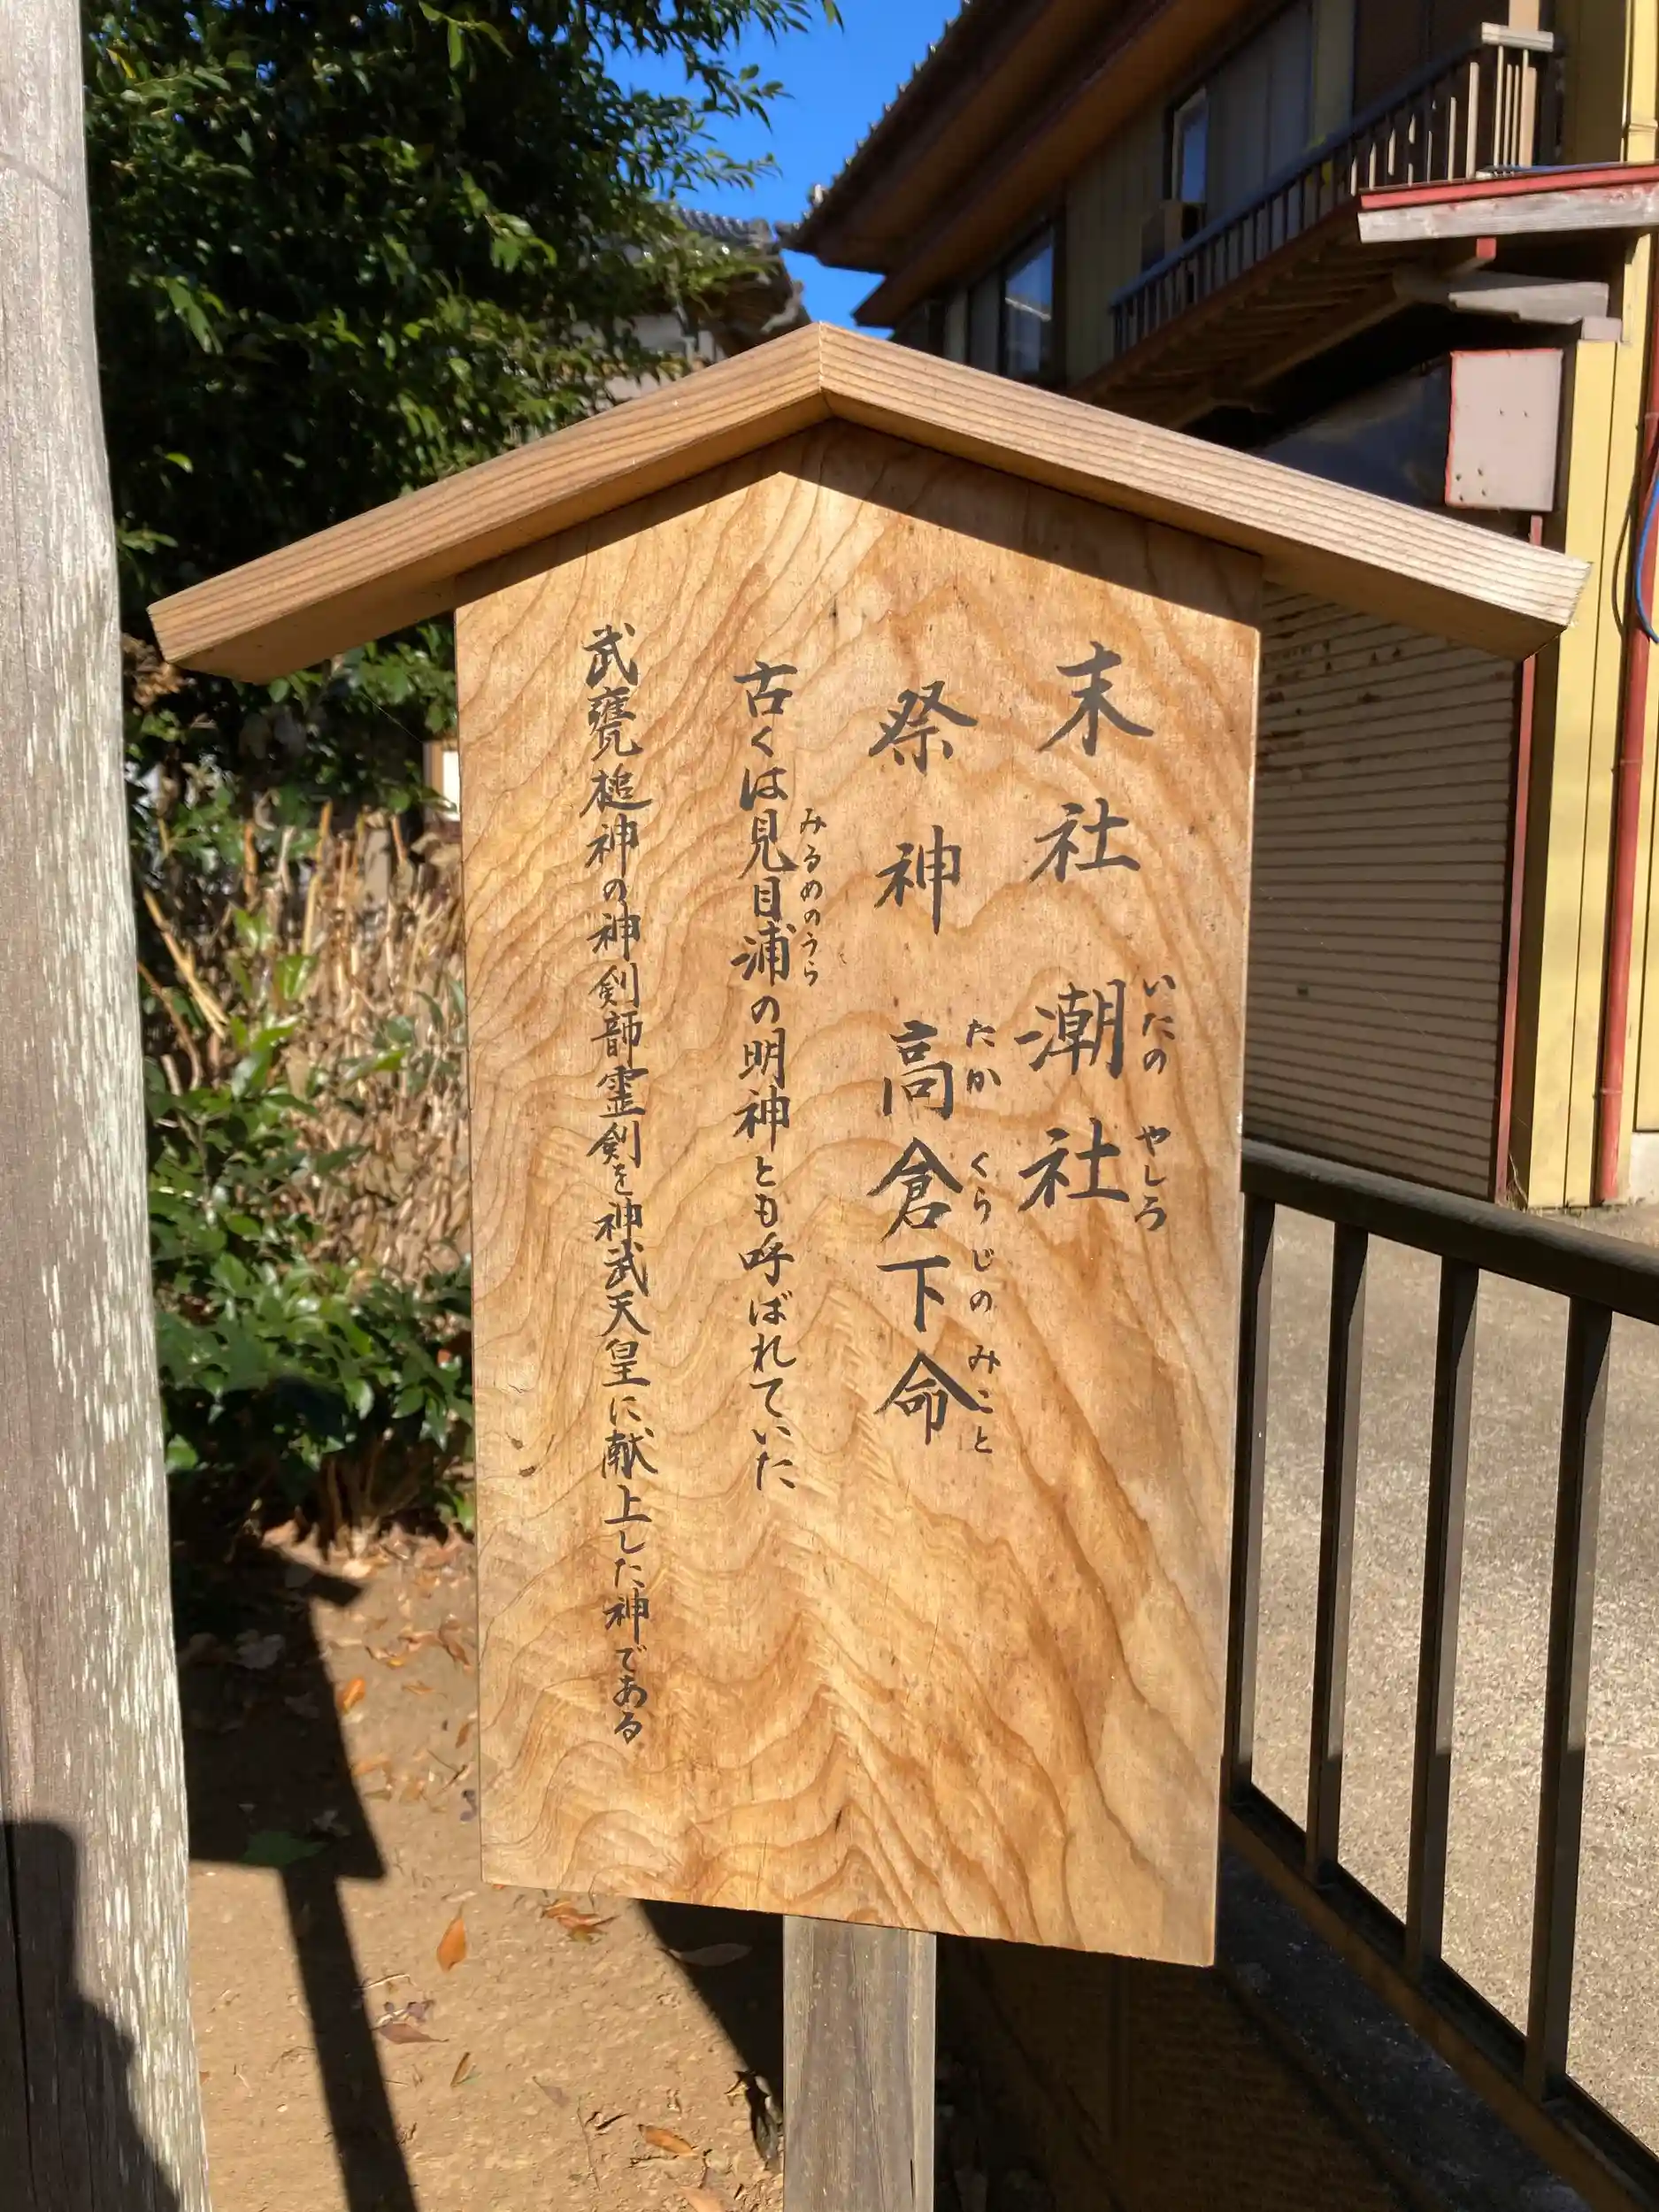 末社 潮社
いたの やしろ
祭神 高倉下命
たか くらじの みこと
古くは見目浦の明神とも呼ばれていた
みるめのうら
武甕槌神の神剣韴霊剣を神武天皇に献上した神である